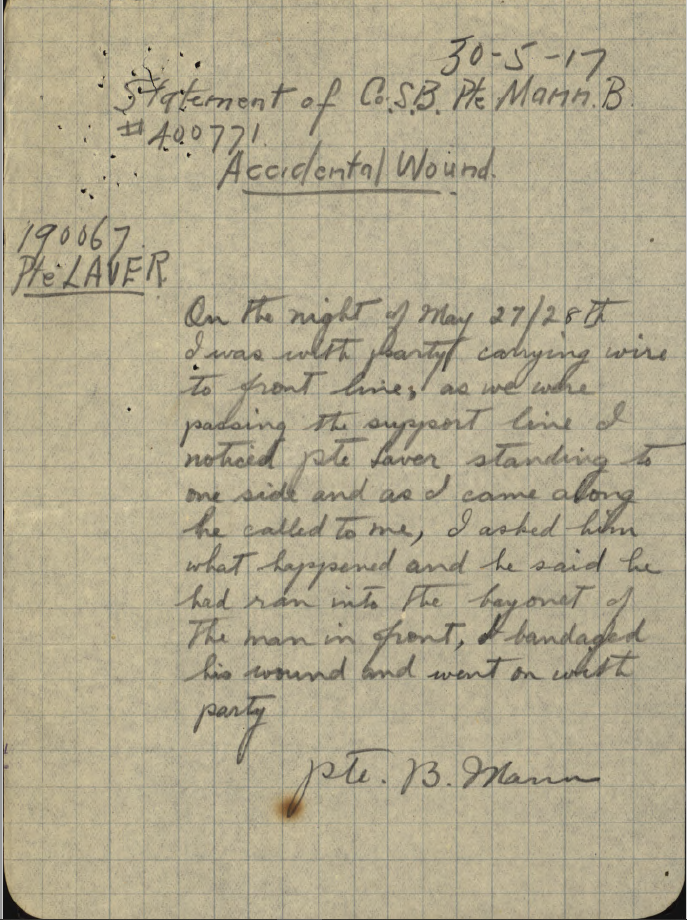 30-5-17
Statement of Co.S.B. Pte Mann. B.
#400771.
Accidental Wound.
190067.
Pte LAVER
On the night of May 27/28th
I was with party carrying wire
to front line, as we were
passing the support line I
noticed Pte Laver standing to
one side and as I came along
he called to me, I asked him
what happened and he said he
had ran into the bayonet of
the man in front, I bandaged
his wound and went on with
party
Pte. B. Mann